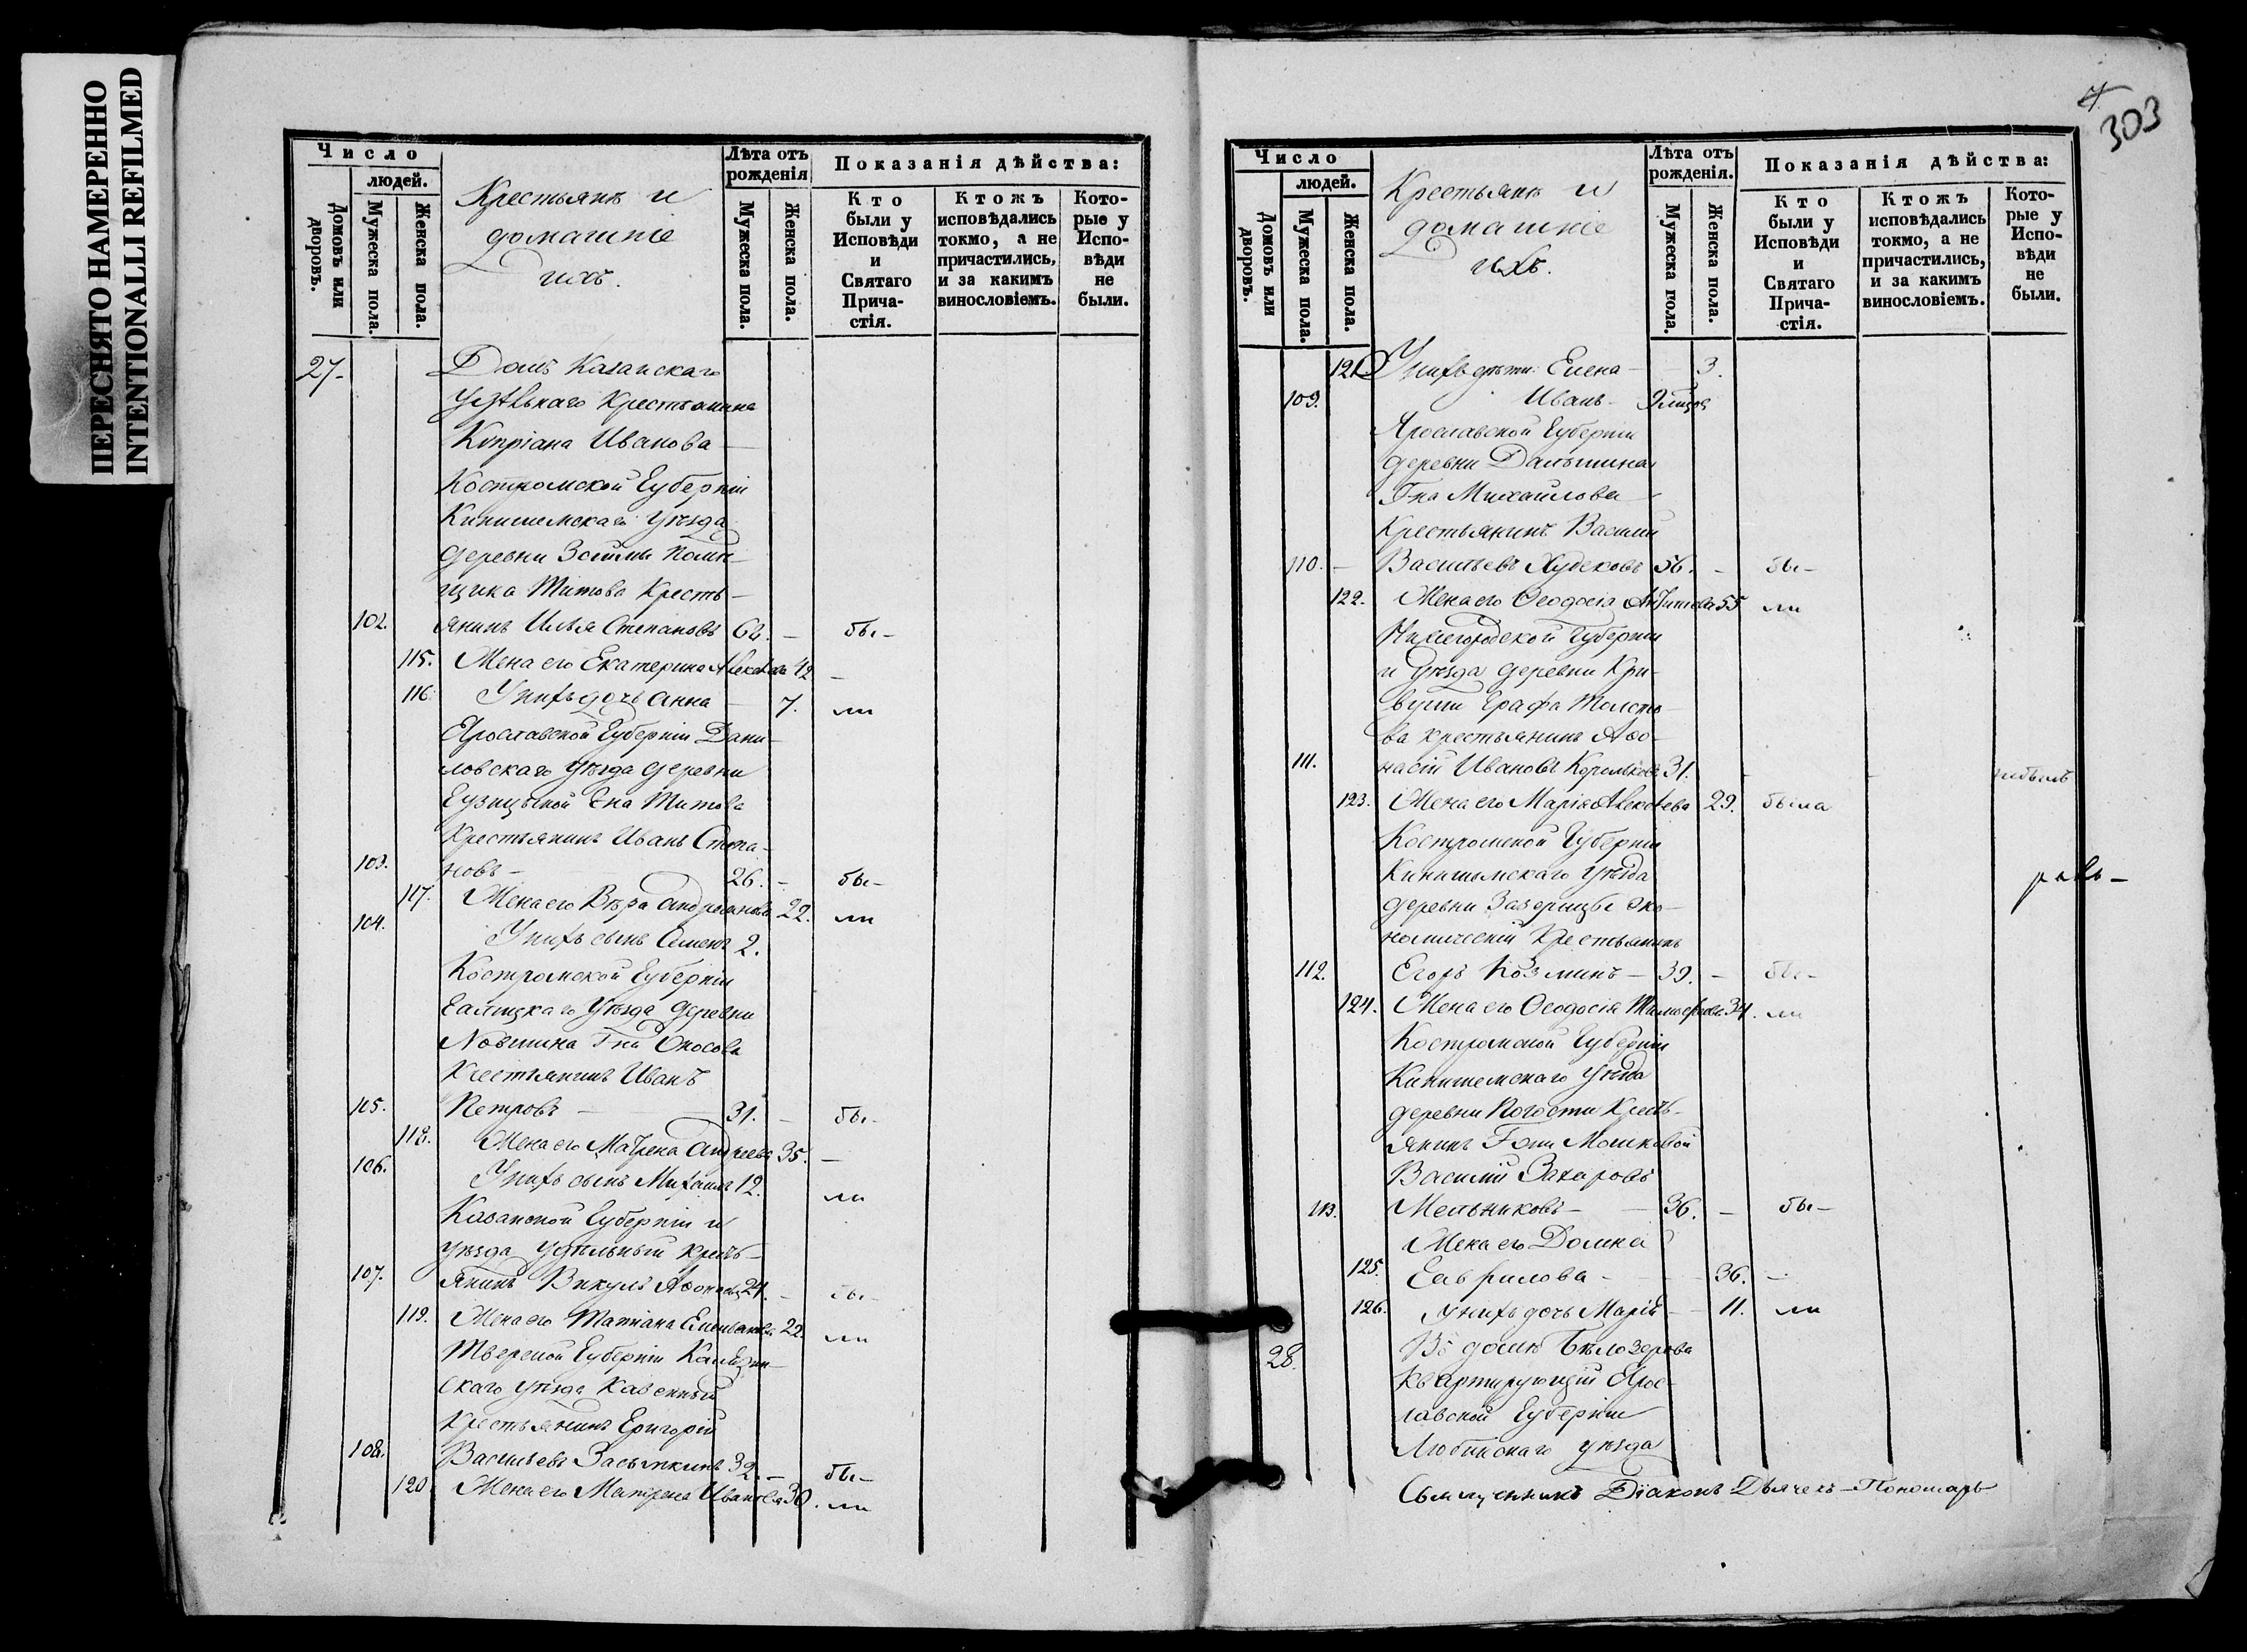 ПЕРЕСНЯТО НАМЕРЕННО
INTENTIONALLI REFILMED
Число
людей.
Домовъ или дворовъ.
Мужеска пола.
Женска пола.
Крестьянъ и
домашніе
ихъ.
Лѣта отъ рожденія
Мужеска пола.
Женска пола.
Показанія дѣйства:
Кто были у Исповѣди и Святаго Причастія.
Ктожъ исповѣдались токмо, а не причастились, и за какимъ винословіемъ.
Которые у Исповѣди не были.
27. Домъ Казанскаго
Крестьянина
Кипріана Иванова
Костромской Губерніи
Кинишемскаго Уѣзда
деревни помѣ-
щика Титова Кресть-
102. янинъ Илья Степановъ 62. - бы-
115. Жена его Екатерина Алексѣева 42 -
116. У нихъ дочь Анна - 7. ли
Ярославской Губерніи Дани-
ловскаго уѣзда деревни
Гна Титова
Крестьянинъ Иванъ Степа-
103. новъ - 26. - бы-
117. Жена его Вѣра Андреянова 22. ли
104. У нихъ сынъ Семенъ 2.
Костромской Губерніи
Галицкаго Уѣзда деревни
Новинка Гна
Крестьянинъ Иванъ
105. Петровъ - 31. - бы-
118. Жена его Матрена Андреева 35. -
106. У нихъ сынъ Михаилъ 12. ли
Казанской Губерніи и
уѣзда удѣльный Кресть-
107. янинъ Викулъ Афонасьевъ 24. - бы-
119. Жена его Татіана Емельянова 22. ли
Тверской Губерніи Калязин-
скаго уѣзда Казенный
Крестьянинъ Григорій
108. Васильевъ Засыпкинъ 32. - бы-
120. Жена его Матрена Иванова 30. ли
7
303
Число
людей.
Домовъ или дворовъ.
Мужеска пола.
Женска пола.
Крестьянъ и
домашніе
ихъ.
Лѣта отъ рожденія.
Мужеска пола.
Женска пола.
Показанія дѣйства:
Кто были у Исповѣди и Святаго Причастія.
Ктожъ исповѣдались токмо, а не причастились, и за какимъ винословіемъ.
Которые у Исповѣди не были.
121. У нихъ дѣти: Елена - 3.
109. Иванъ -
Ярославской Губерніи
деревни
Гна Михайлова
Крестьянинъ Василій
110. - Васильевъ Худековъ 56. - бы-
122. Жена его Ѳеодосія 55 ли
Нижегородской Губерніи
и Уѣзда деревни Кри-
вуши Графа Толсто-
ва крестьянинъ Афо-
111. насій Ивановъ Корольковъ 31. - - небылъ
123. Жена его Марія Алексѣева 29. была
Костромской Губерніи
Кинишемскаго уѣзда
деревни эко-
номическій Крестьянинъ
112. Егоръ Козминъ - 39. - бы-
124. Жена его Ѳеодосія Тимофѣева 34. ли
Костромской Губерніи
Кинишемскаго Уѣзда
деревни Погости Кресть-
янинъ Гжи Мошковой
Василій Захаровъ
113. Мельниковъ - 36. - бы-
Жена его Домна
125. Гаврилова - 36. -
126. У нихъ дочь Марія - 11. ли
28. Въ домѣ Бѣлозерова
Квартирующій Яро-
лавской Губерніи
Любимскаго уѣзда
Священникъ Діаконъ Дьячекъ - Пономарь